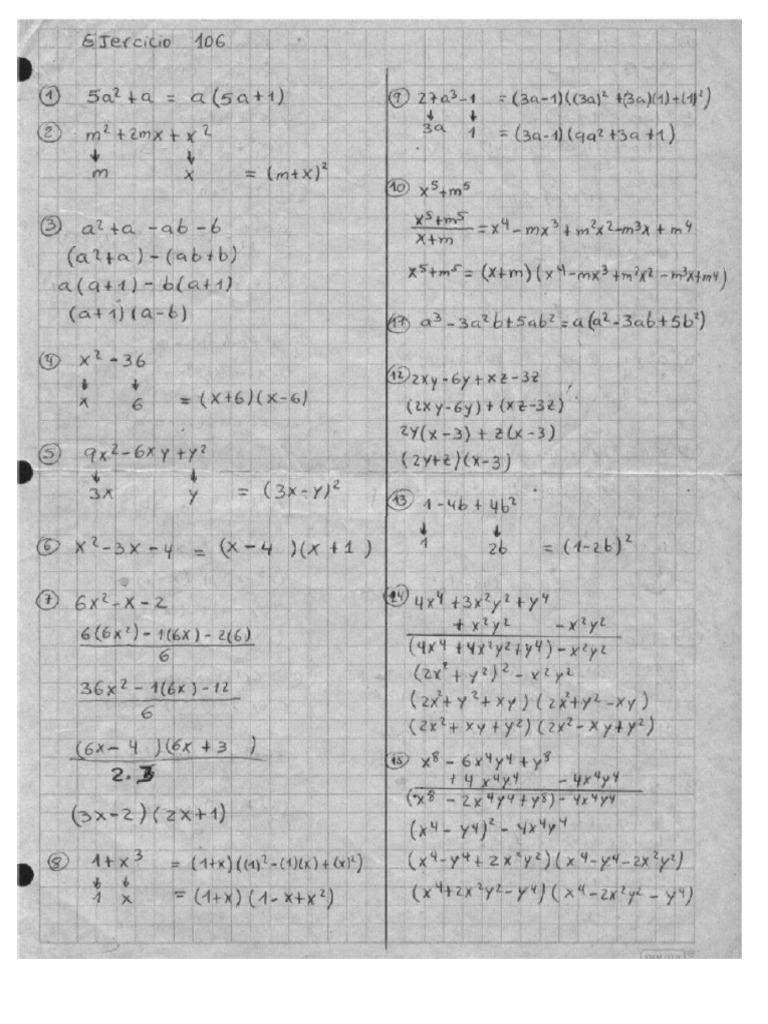 Ejercicio 106
① 5a² + a = a(5a+1)
② m² + 2mx + x²
↓ ↓
m x = (m+x)²
③ a² + a - ab - b
(a²+a) - (ab+b)
a(a+1) - b(a+1)
(a+1)(a-b)
④ x² - 36
↓ ↓
x 6 = (x+6)(x-6)
⑤ 9x² - 6xy + y²
↓ ↓
3x y = (3x-y)²
⑥ x² - 3x - 4 = (x-4 )(x+1 )
⑦ 6x² - x - 2
6(6x²) - 1(6x) - 2(6)
6
36x² - 1(6x) - 12
6
(6x- 4 )(6x + 3 )
2.3
(3x-2)(2x+1)
⑧ 1 + x³ = (1+x)((1)² - (1)(x) + (x)²)
↓ ↓
1 x = (1+x)(1-x+x²)
⑨ 27a³ - 1 = (3a-1)((3a)² + (3a)(1) + (1)²)
↓ ↓
3a 1 = (3a-1)(9a² + 3a + 1)
⑩ x⁵ + m⁵
x⁵+m⁵
x+m
= x⁴ - mx³ + m²x² - m³x + m⁴
x⁵+m⁵ = (x+m)(x⁴ - mx³ + m²x² - m³x + m⁴)
⑪ a³ - 3a²b + 5ab² = a(a² - 3ab + 5b²)
⑫ 2xy - 6y + xz - 3z
(2xy - 6y) + (xz - 3z)
2y(x-3) + z(x-3)
(2y+z)(x-3)
⑬ 1 - 4b + 4b²
↓ ↓
1 2b = (1-2b)²
⑭ 4x⁴ + 3x²y² + y⁴
+ x²y² - x²y²
(4x⁴ + 4x²y² + y⁴) - x²y²
(2x² + y²)² - x²y²
(2x² + y² + xy)(2x² + y² - xy)
(2x² + xy + y²)(2x² - xy + y²)
⑮ x⁸ - 6x⁴y⁴ + y⁸
+ 4x⁴y⁴ - 4x⁴y⁴
(x⁸ - 2x⁴y⁴ + y⁸) - 4x⁴y⁴
(x⁴ - y⁴)² - 4x⁴y⁴
(x⁴ - y⁴ + 2x²y²)(x⁴ - y⁴ - 2x²y²)
(x⁴ + 2x²y² - y⁴)(x⁴ - 2x²y² - y⁴)